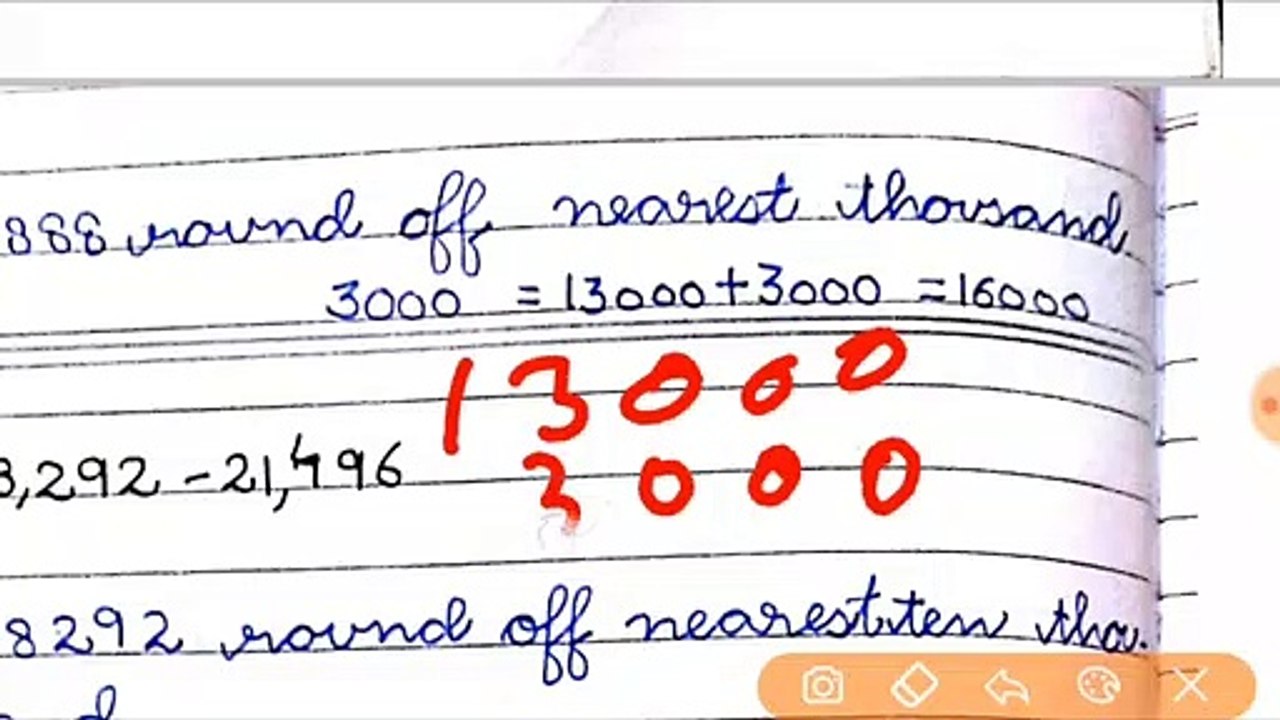 888 round off nearest thousand
3000 = 13000+3000 = 16000
13000
8,292 - 21,496
3000
8292 round off nearest ten thou.